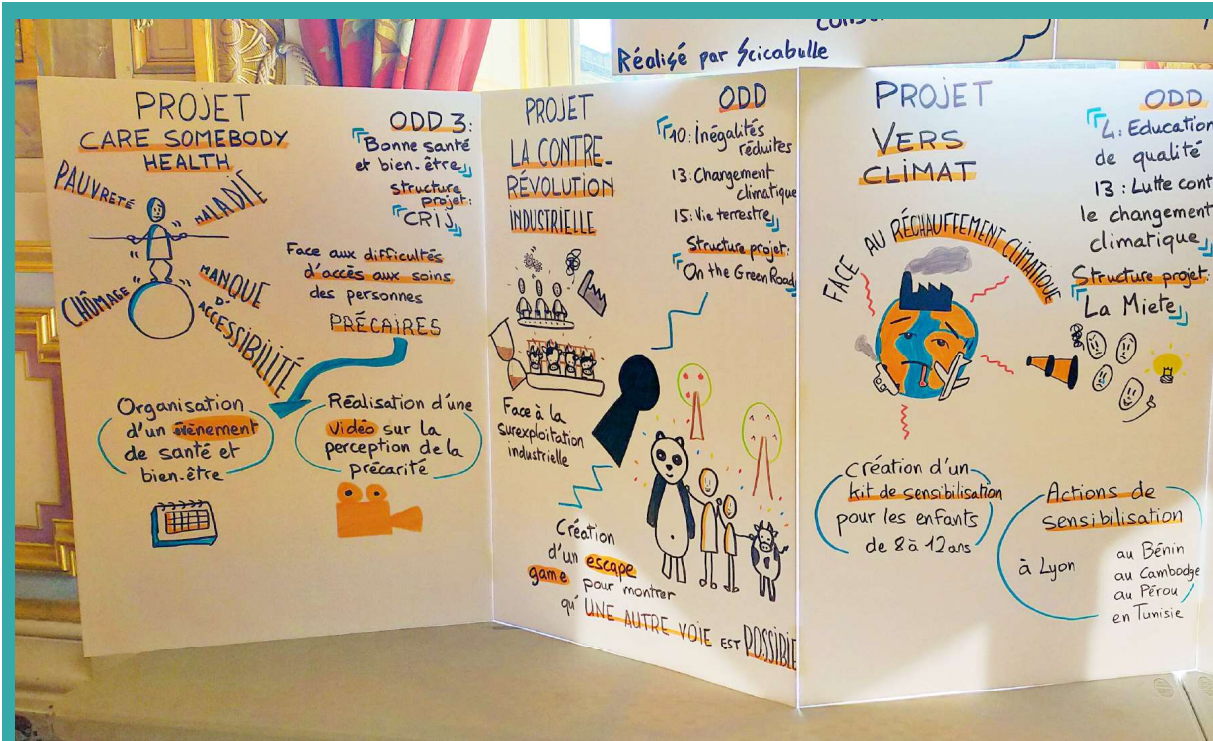 Réalisé par Scicabulle
PROJET
CARE SOMEBODY
HEALTH
ODD 3:
Bonne santé
et bien-être
structure
projet:
CRIJ
PAUVRETÉ
MALADIE
CHÔMAGE
MANQUE
D'
ACCESSIBILITÉ
Face aux difficultés
d'accès aux soins
des personnes
PRÉCAIRES
Organisation
d'un évènement
de santé et
bien-être
Réalisation d'une
vidéo sur la
perception de la
précarité
PROJET
LA CONTRE-
RÉVOLUTION
INDUSTRIELLE
ODD
10: Inégalités
réduites
13: Changement
climatique
15: Vie terrestre
Structure projet:
On the Green Road
Face à la
surexploitation
industrielle
Création
d'un escape
game pour montrer
qu'UNE AUTRE VOIE EST POSSIBLE
PROJET
VERS
CLIMAT
ODD
4: Education
de qualité
13: Lutte cont
le changement
climatique
Structure projet:
La Miete
FACE AU RÉCHAUFFEMENT CLIMATIQUE
Création d'un
kit de sensibilisation
pour les enfants
de 8 à 12 ans
Actions de
sensibilisation
à Lyon
au Bénin
au Cambodge
au Pérou
en Tunisie